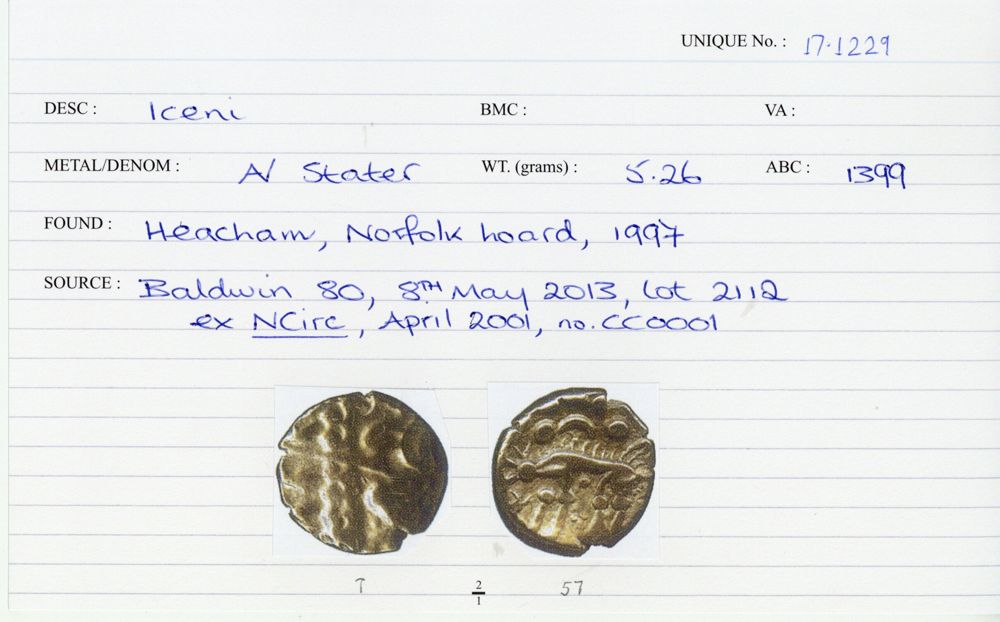 UNIQUE No. : 17.1229
DESC : Iceni BMC : VA :
METAL/DENOM : A/ Stater WT. (grams) : 5.26 ABC : 1399
FOUND : Heacham, Norfolk hoard, 1997
SOURCE : Baldwin 80, 8TH May 2013, Lot 2112
ex NCirc, April 2001, no. CC0001
2/1 57